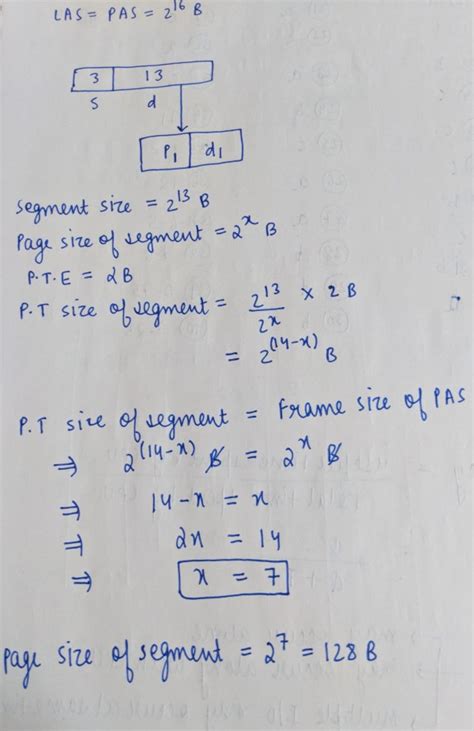 LAS = PAS = 2^16 B
3 13
s d
P1 d1
segment size = 2^13 B
Page size of segment = 2^x B
P.T.E = 2B
P.T size of segment = 2^13 / 2^x × 2B
= 2^(14-x) B
P.T size of segment = Frame size of PAS
⇒ 2^(14-x) B = 2^x B
⇒ 14-x = x
⇒ 2x = 14
⇒ x = 7
Page size of segment = 2^7 = 128 B